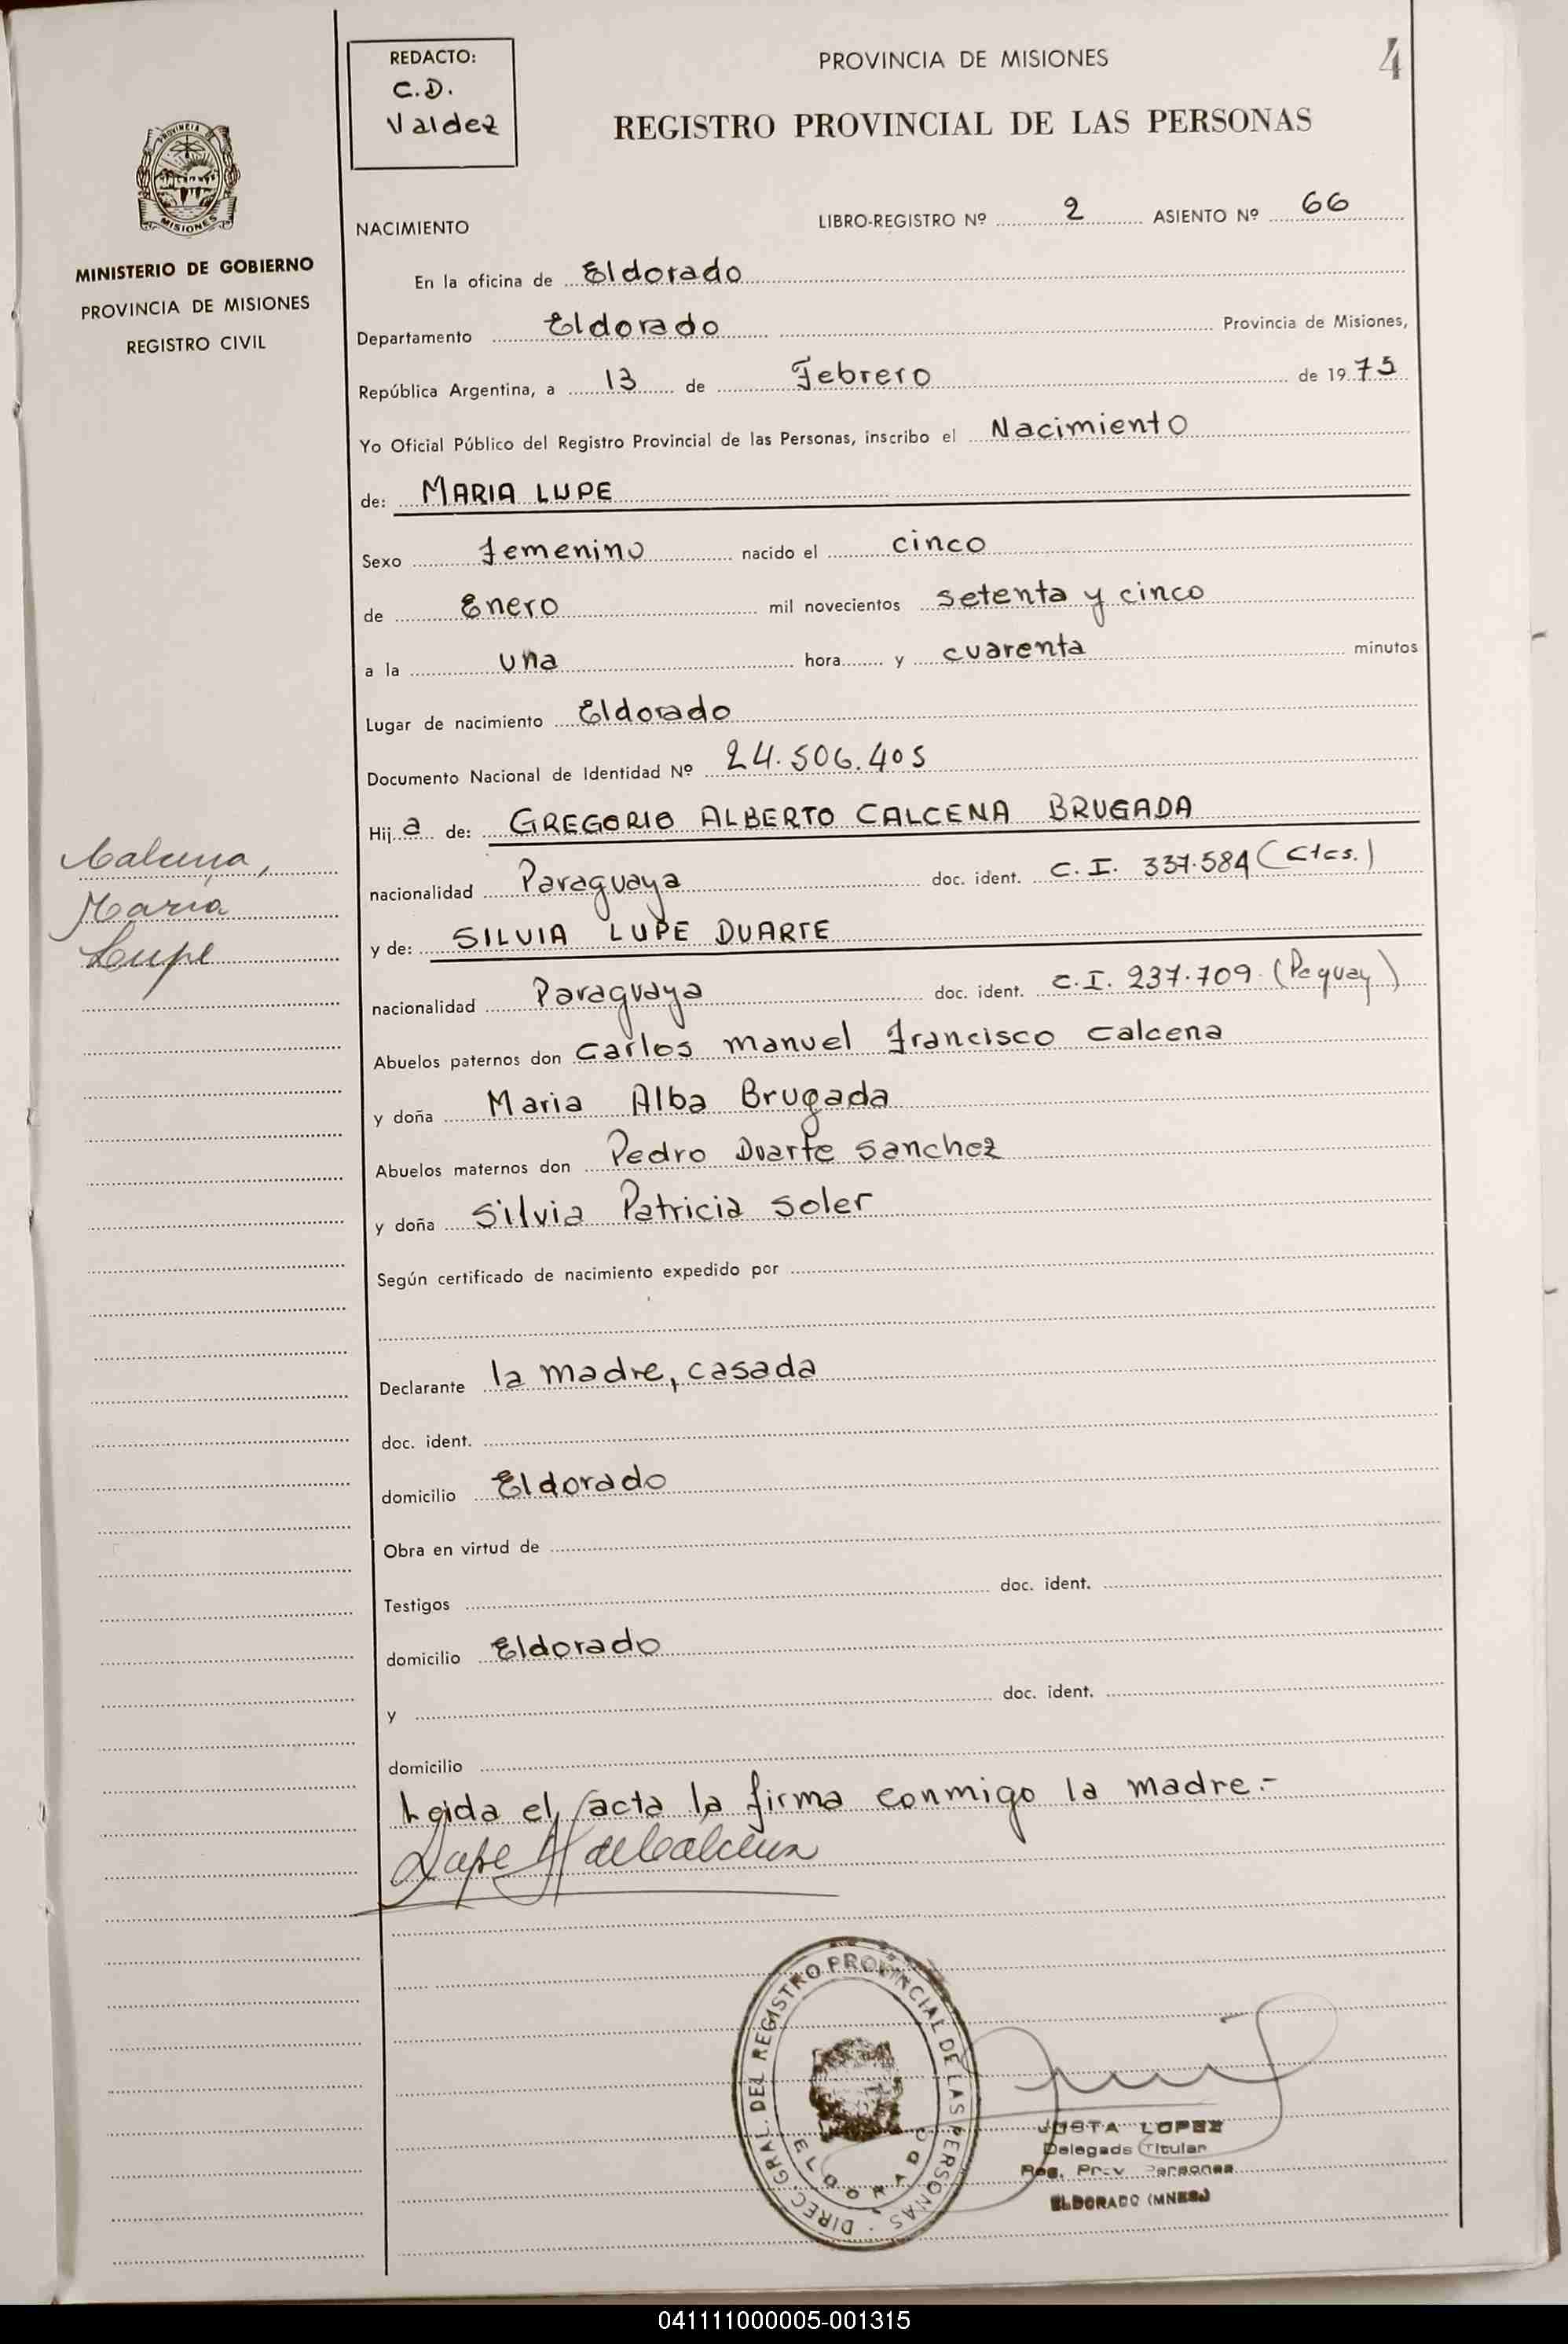 REDACTO:
C.D.
Valdez
PROVINCIA DE MISIONES
4
REGISTRO PROVINCIAL DE LAS PERSONAS
PROVINCIA DE
MISIONES
MINISTERIO DE GOBIERNO
PROVINCIA DE MISIONES
REGISTRO CIVIL
NACIMIENTO
LIBRO-REGISTRO Nº 2 ASIENTO Nº 66
En la oficina de Eldorado
Departamento Eldorado Provincia de Misiones,
República Argentina, a 13 de Febrero de 1975
Yo Oficial Público del Registro Provincial de las Personas, inscribo el Nacimiento
de: MARIA LUPE
Sexo Femenino nacido el cinco
de Enero mil novecientos setenta y cinco
a la una hora y cuarenta minutos
Lugar de nacimiento Eldorado
Documento Nacional de Identidad Nº 24.506.405
Hija de: GREGORIO ALBERTO CALCENA BRUGADA
Calcena,
María
Lupe
nacionalidad Paraguaya doc. ident. C.I. 337.584 (Ctes.)
y de: SILVIA LUPE DUARTE
nacionalidad Paraguaya doc. ident. C.I. 237.709. (Peguay)
Abuelos paternos don Carlos manuel Francisco Calcena
y doña Maria Alba Brugada
Abuelos maternos don Pedro Duarte Sanchez
y doña Silvia Patricia Soler
Según certificado de nacimiento expedido por
Declarante la madre, casada
doc. ident.
domicilio Eldorado
Obra en virtud de
Testigos doc. ident.
domicilio Eldorado
y doc. ident.
domicilio
Leida el acta la firma conmigo la madre.-
Lupe de Calcena
DIREC. GRAL. DEL REGISTRO PROVINCIAL DE LAS PERSONAS
ELDORADO
JUSTA LOPEZ
Delegada Titular
Reg. Prov. Personas
ELDORADO (MNES.)
041111000005-001315